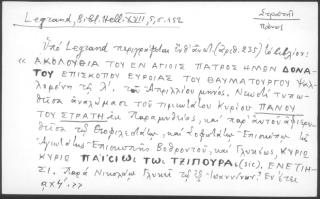 Legrand, Bibl. Hell. XVII, 5, σ. 152
Στρατῆ
Πᾶνος
Ὑπὸ Legrand περιγράφεται ἐνθ' ἀνωτ. (ἀριθ. 235) τὸ βιβλίον:
« ΑΚΟΛΟΥΘΙΑ ΤΟΥ ΕΝ ΑΓΙΟΙΣ ΠΑΤΡΟΣ ΗΜΩΝ ΔΟΝΑ-
ΤΟΥ ΕΠΙΣΚΟΠΟΥ ΕΥΡΟΙΑΣ ΤΟΥ ΘΑΥΜΑΤΟΥΡΓΟΥ Ψαλ-
λομένη τῇ λ'. τοῦ Ἀπριλλίου μηνός. Νεωστὶ τυπω-
θεῖσα ἀναλώμασι τοῦ τιμιωτάτου Κυρίου ΠΑΝΟΥ
ΤΟΥ ΣΤΡΑΤΗ ἐκ Παραμυθίας, καὶ παρ' αὐτοῦ ἀφιερω-
θεῖσα τῷ Θεοφιλεστάτῳ, καὶ Σοφωτάτῳ Ἐπισκόπῳ τῆς
Ἁγιωτάτης Ἐπισκοπῆς Βοθροντοῦ, καὶ Γλυκέως, ΚΥΡΙῼ
ΚΥΡΙῼ ΠΑΪΣΙῼ Τῼ ΤΖΙΠΟΥΡΑ (sic). ΕΝΕΤΙΗ-
ΣΙ. Παρὰ Νικολάῳ Γλυκεῖ τῷ ἐξ Ἰωαννίνων. Ἐν ἔτει